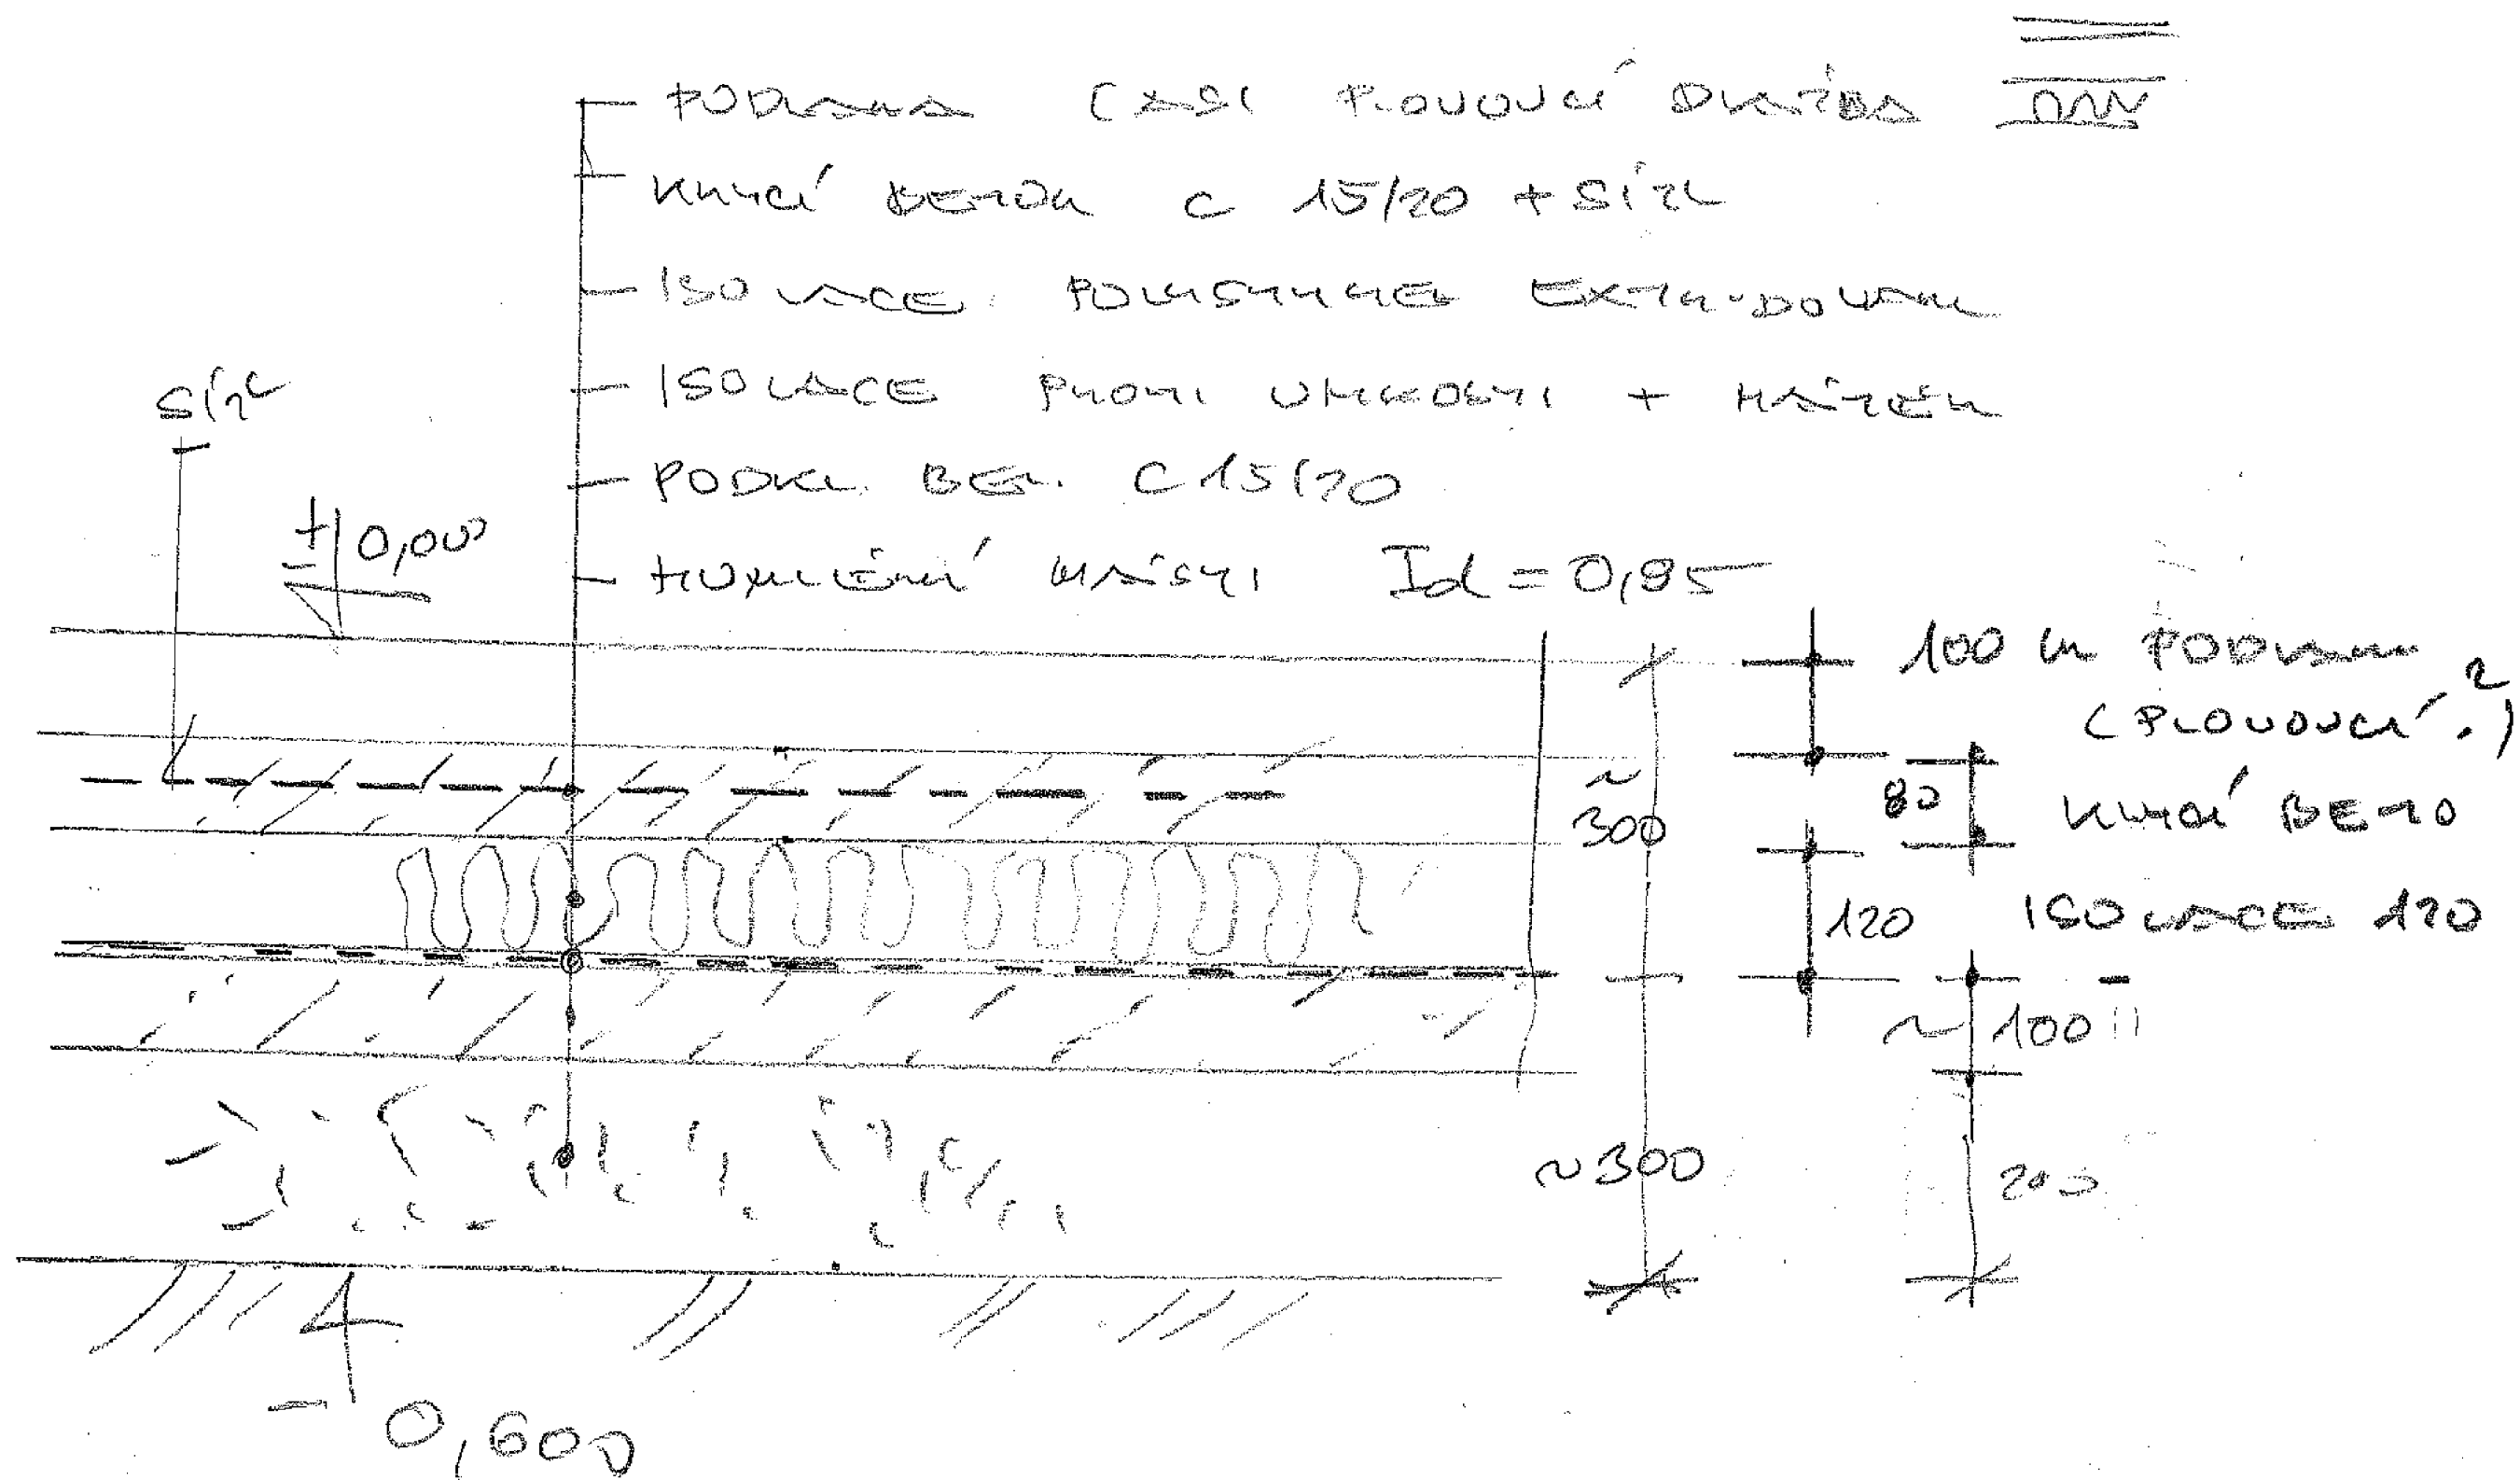 PODLAHA ČÁST PLOVOUCÍ DLAŽBA
KRYCÍ BETON C 15/20 + SÍTĚ
ISOLACE POLYSTYREN EXTRUDOVAN
ISOLACE PROTI VLHKOSTI + NÁTĚR
PODKL. BET. C 15/20
HUTNĚNÍ Id = 0,85
SÍTĚ
± 0,000
100 PODLAHA
(PLOVOUCÍ ?)
~ 300
80 KRYCÍ BETO
120 ISOLACE 120
~ 100
~300
200
- 0,600